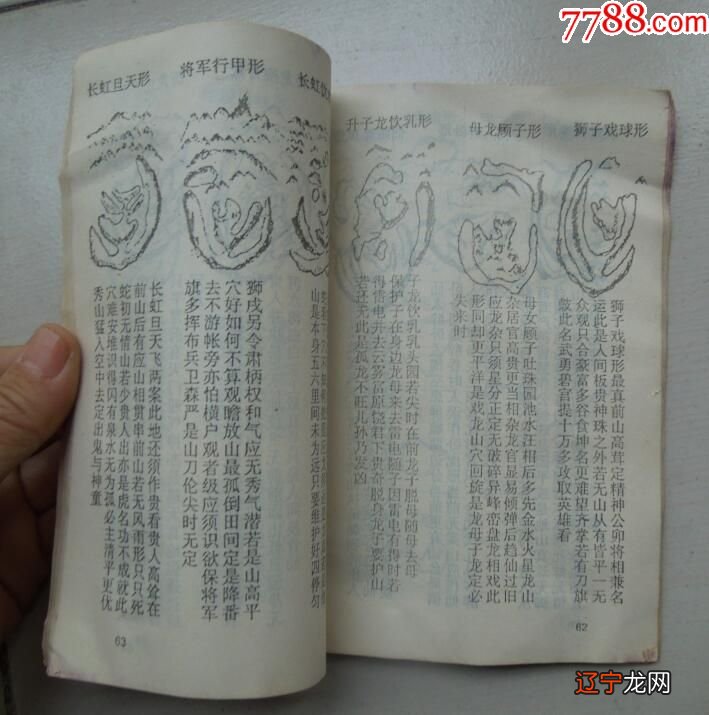 7788.com
狮子戏球形
狮子戏球形最真前山高茸定精神公卯将相兼名
运此是人间板贵神珠之外若无山从有皆平一无
众观只合豪富多谷食坤名更难望齐掌若有刀旗
敌此名武勇碧官提十万多攻取英雄看
母龙顾子形
母女顾子吐珠园池水汪相后多先金水火星龙山
杂居官高贵更当相杂龙官显易倾弹后趋仙过旧
应龙杂只须星分正定无破碎异峰峦盘龙相戏此
形同却更平洋是戏龙山穴回旋是龙母子龙定必
失来时
升子龙饮乳形
子龙饮乳乳头园若尖时在前龙子脱母随母去母
保护子在身边龙母来去雷电随子因雷电有得时若
得雷电并去云雾富原饶君下贵奇脱身龙子要护山
若还无此是孤龙不旺儿孙乃发凶
62
长虹饮
山是本身五六里间未为远只要维护好四停匀
将军行甲形
狮戌另令肃柄权和气应无秀气潜若是山高平
穴好如何不算观瞻放山最孤倒田间定是降番
去不游帐旁亦怕横户观者级应须识欲保将军
旗多挥布兵卫森严是山刀伦尖时无定
长虹旦天形
长虹旦天飞两案此地还须作贵看贵人高耸在
前山后有应山相贯串前山若无风雨形只只死
蛇初无情山若少贵人出亦是虎名功不成就此
穴难安堆识得闪有泉水无为孤必主清平更优
秀山猛入空中去定出鬼与神童
63
辽宁龙网